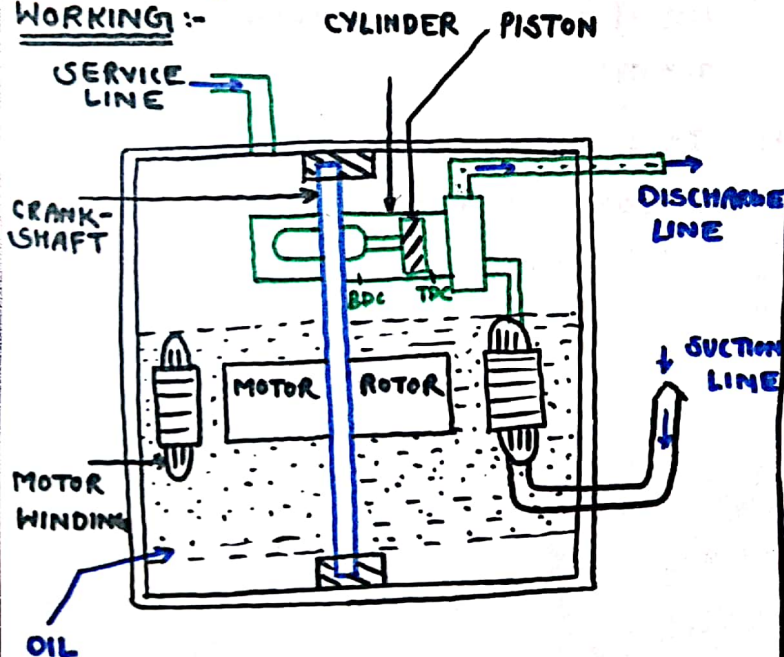 WORKING :-
CYLINDER PISTON
SERVICE
LINE
CRANK-
SHAFT
DISCHARGE
LINE
BDC TDC
SUCTION
LINE
MOTOR ROTOR
MOTOR
WINDING
OIL